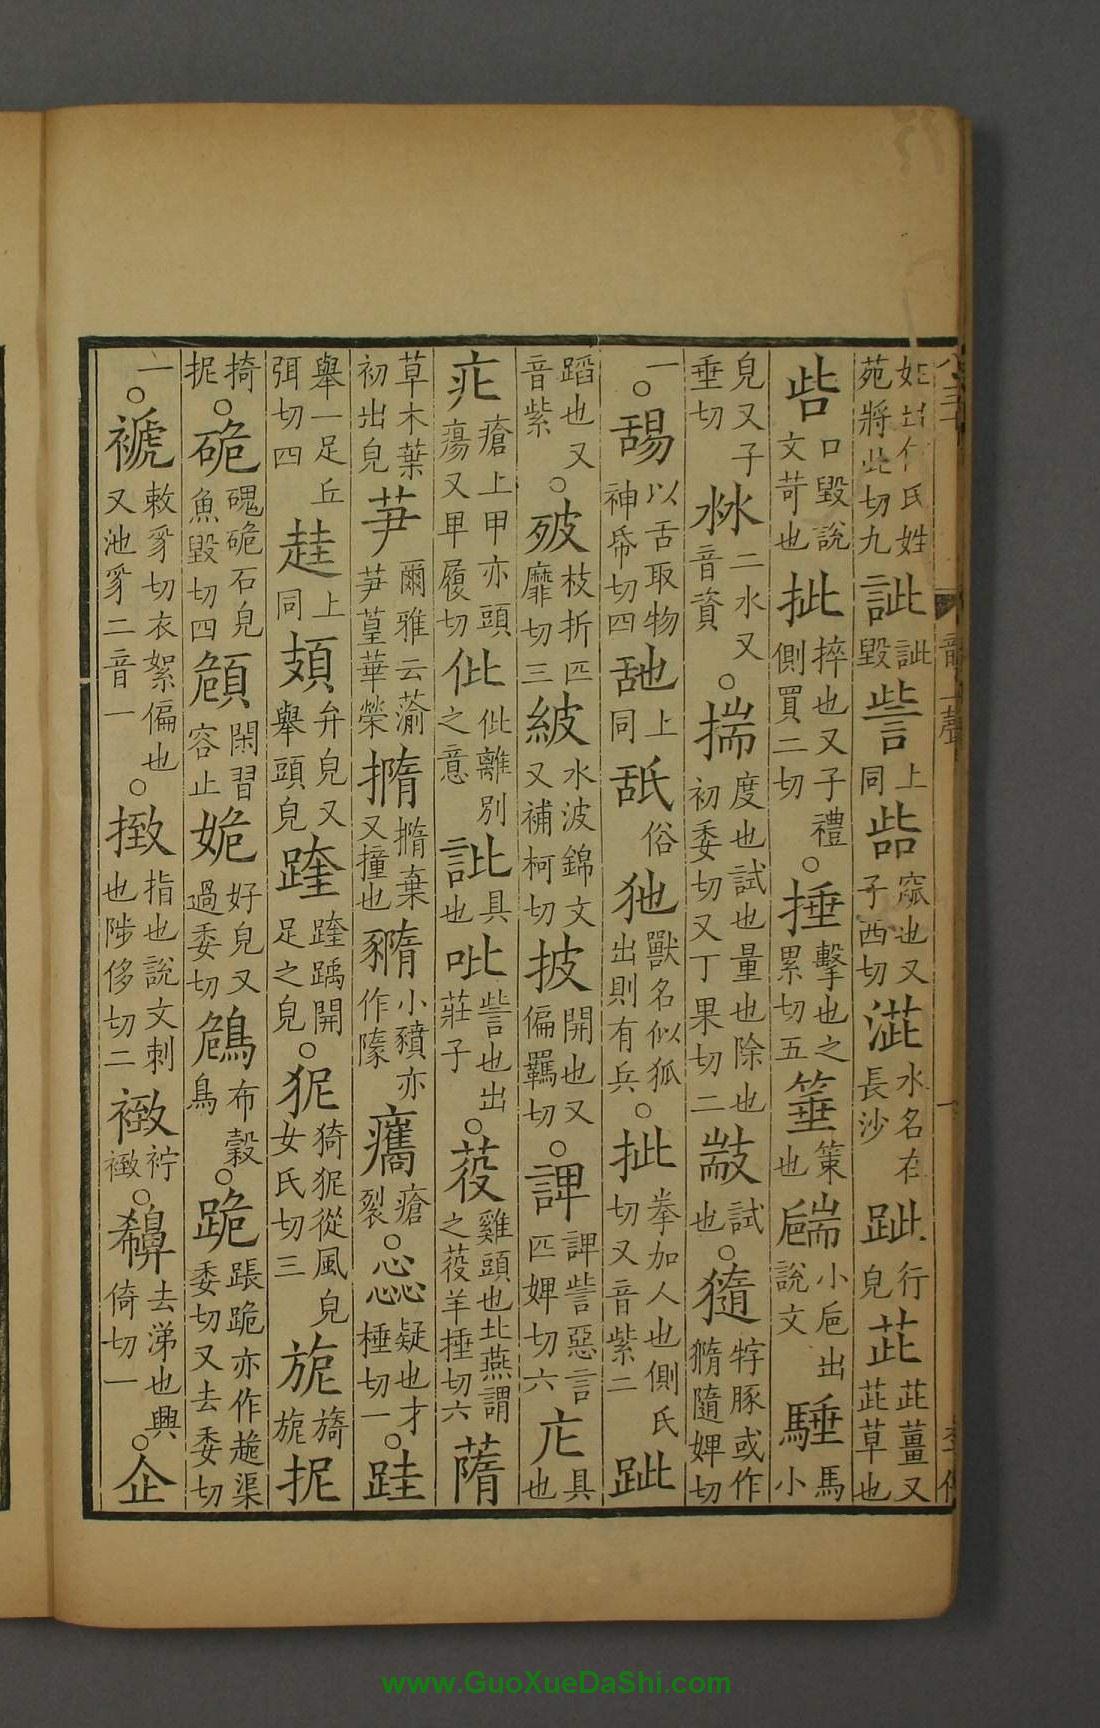 姓出何氏姓苑將此切九訿訿毀訾上同㗪窳也又子西切㴿水名在長沙跐行皃茈茈薑又茈草也
呰口毀說文苛也㧗捽也又子禮側買二切○捶擊也之累切五箠策也𠨓小巵出說文騄馬小
皃又子垂切沝二水又音資○揣度也試也量也除也初委切又丁果切二㪜試也○𤡣㹀豚或作䝐隨婢切
一○舓以舌取物神帋切四䑛上同舐俗狏獸名似狐出則有兵○㧗拳加人也側氏切又音紫二跐
蹈也又音紫○㱟枝折匹靡切三紴水波錦文又補柯切披開也又偏羈切○諀諀訾惡言匹婢切六庀具也
疕瘡上甲亦頭瘍又卑履切仳仳離別之意訿具也吡訾也出莊子○芰雞頭也北燕謂之芰羊捶切六蓨
草木葉初出皃芛爾雅云蕍芛葟華榮撱撱棄又撞也䝐小豶亦作䧦㿜瘡裂○惢疑也才棰切一○跬
舉一足丘弭切四䞨上同頍弁皃又舉頭皃䠑䠑踽開足之皃○狔猗狔從風皃女氏切三旎旖旎抳
掎抳○硊磈硊石皃魚毀切四頠閑習容止姽好皃又過委切鳸布穀鳥○跪䠆跪亦作䞈渠委切又去委切
一○褫敕豸切衣絮偏也又池豸二音一○㨖指也說文刺也陟侈切二緻紵緻○𪖗去涕也興倚切一○企
www.GuoXueDaShi.com